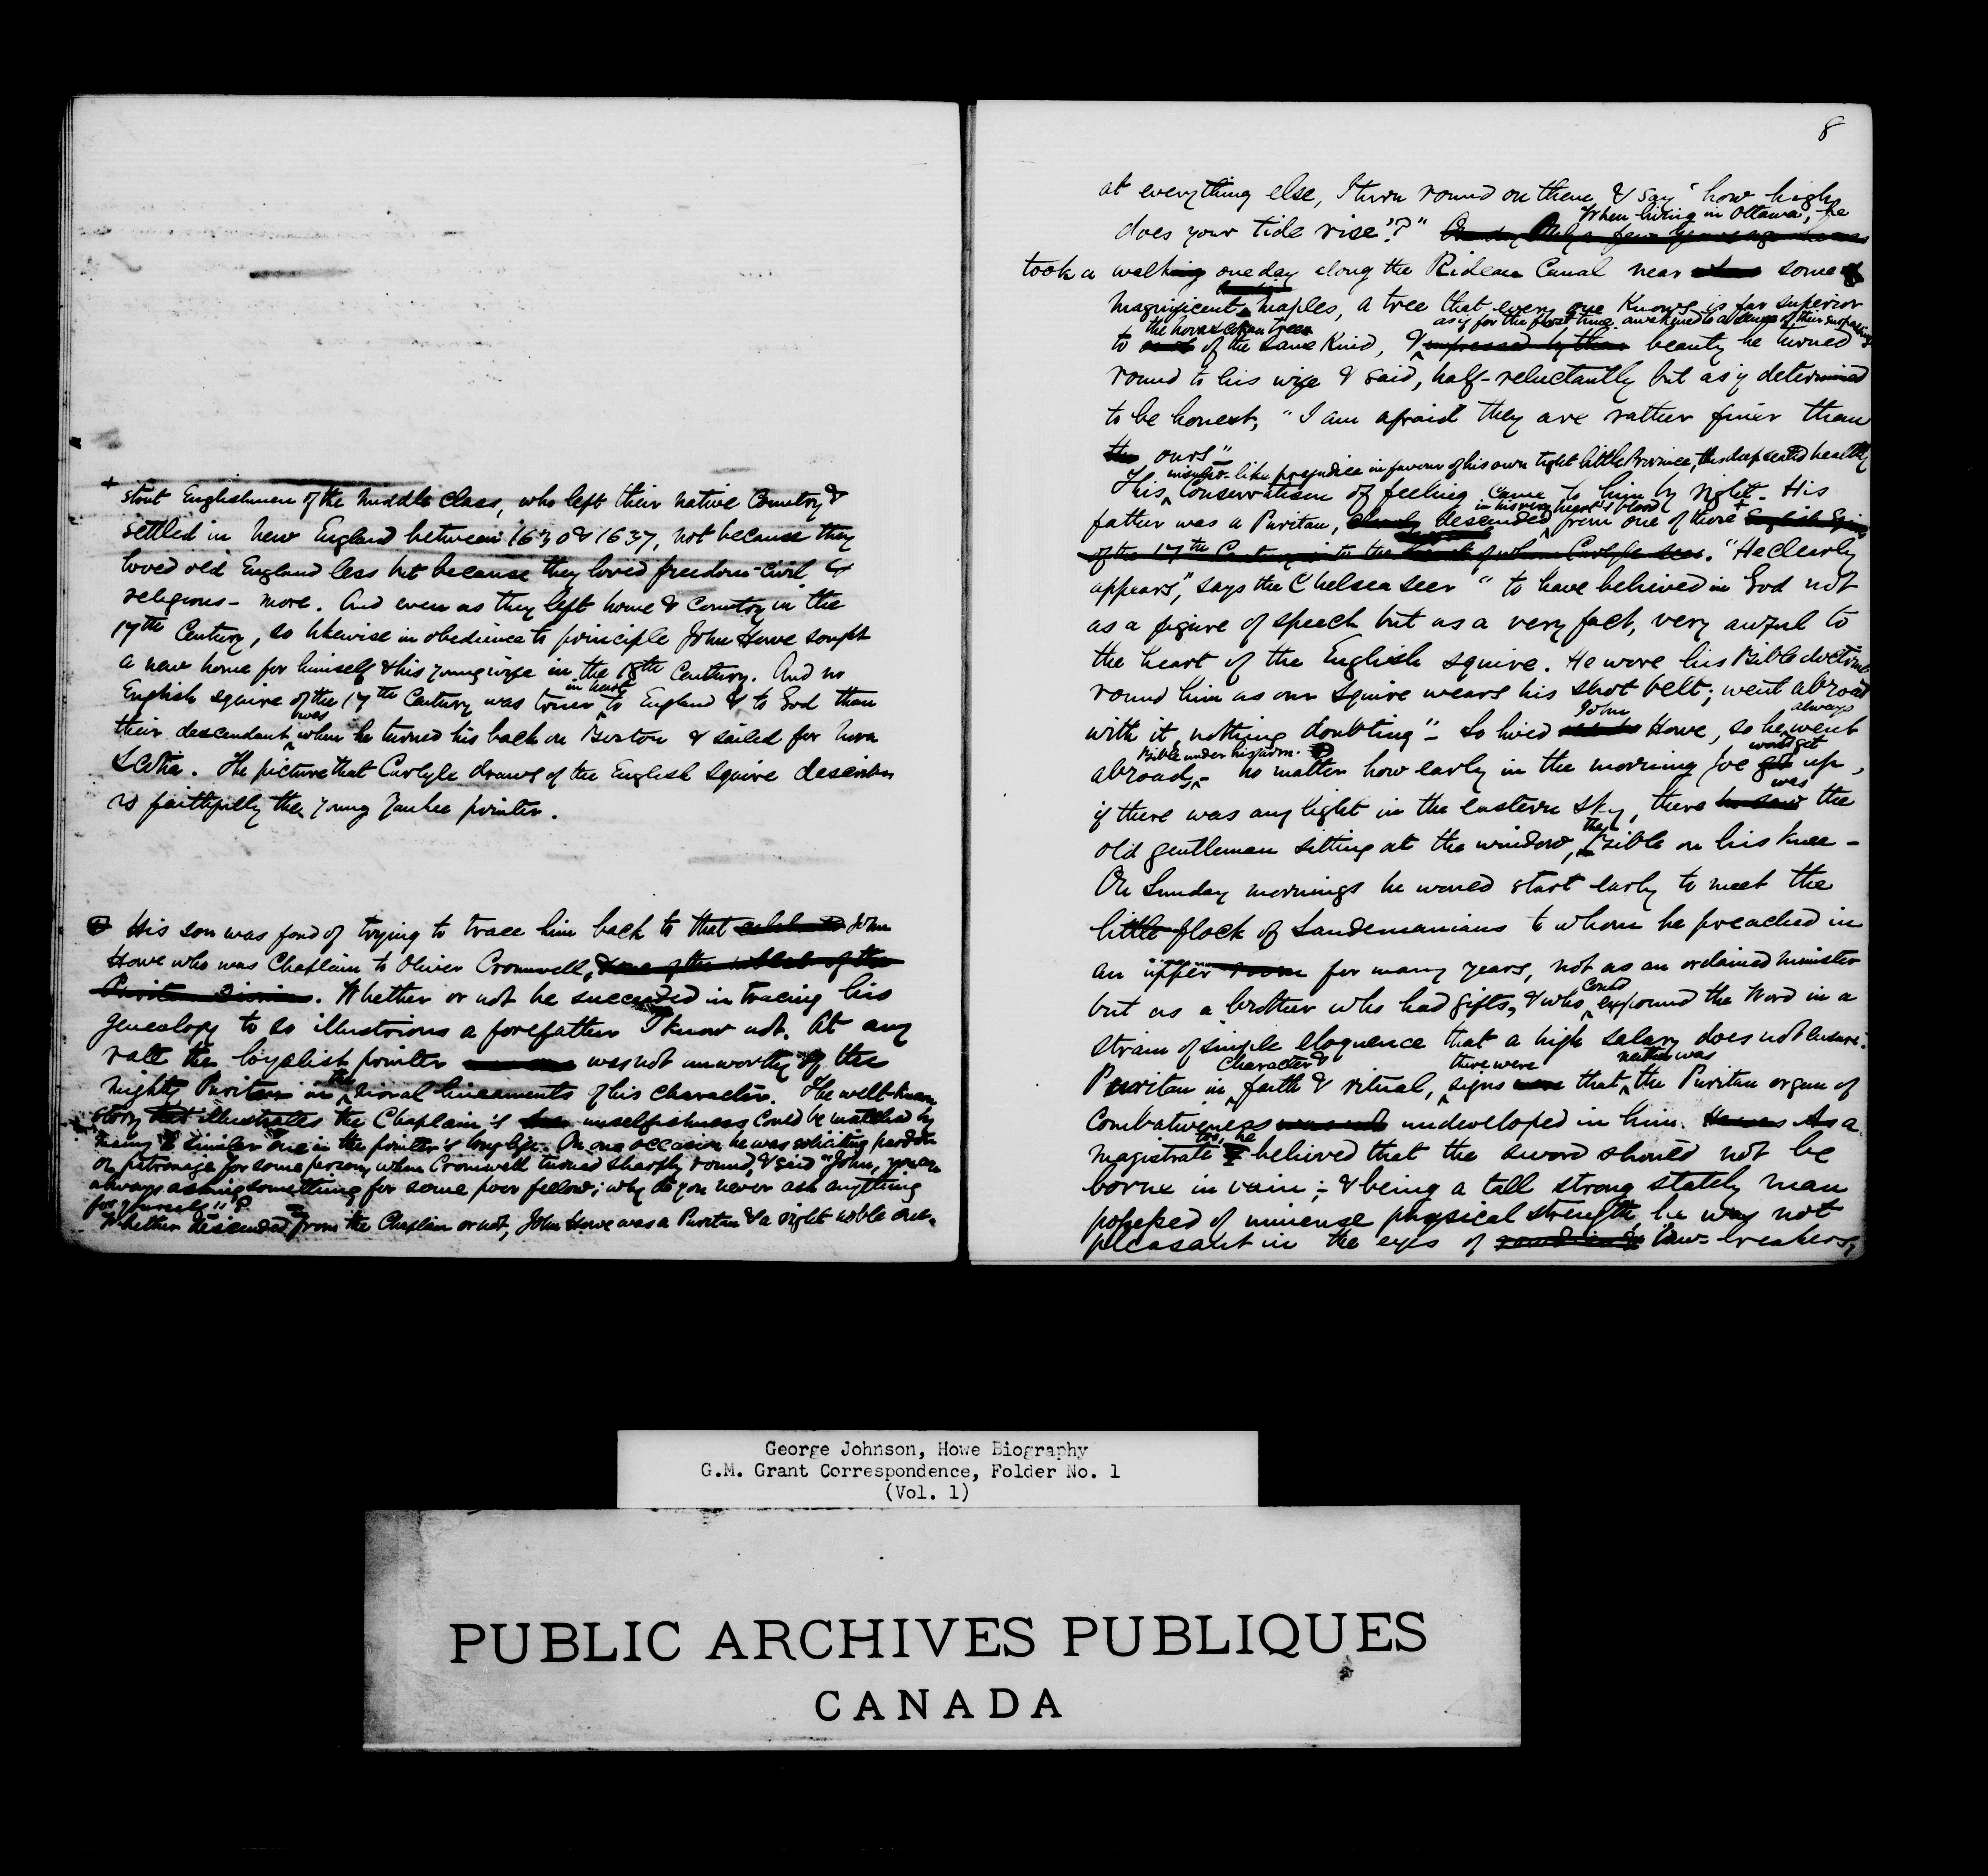 + stout Englishmen of the middle class, who left their native Country &
settled in New England between 1630 & 1637, not because they
loved old England less but because they loved freedom - civil &
religious - more. And even as they left home & country in the
17th Century, so likewise in obedience to principle John Howe sought
a new home for himself & his young wife in the 18th Century. And no
English squire of the 17th Century was truer in heart to England & to God than
their descendant was when he turned his back on Boston & sailed for Nova
Scotia. The picture that Carlyle draws of the English squire describes
as faithfully the young Yankee printer.
His son was fond of trying to trace him back to that John
Howe who was Chaplain to Oliver Cromwell, & one of the noblest of the
Puritan Divines. Whether or not he succeeded in tracing his
genealogy to so illustrious a forefather I know not. At any
rate the loyalist printer was not unworthy of the
mighty Puritan in the moral lineaments of his character. The well-known
story that illustrates the Chaplain's unselfishness could be matched by
many a similar one in the printer's long life. On one occasion he was soliciting pardon
or patronage for some person, when Cromwell turned sharply round, & said "John, you are
always asking something for some poor fellow; why do you never ask anything
for yourself"?
Whether descended from the Chaplain or not, John Howe was a Puritan & a right noble one.
8
at everything else, I turn round on them & say 'how high
When living in Ottawa, he
does your tide rise'?"
took a walking one day along the Rideau Canal near some of
magnificent maples, a tree that every one knows is far superior
the Nova Scotian trees as if for the first time awakened to a sense of their surpassing
to of the same kind, & impressed by their beauty he turned
round to his wife & said, half-reluctantly but as if determined
to be honest, "I am afraid they are rather finer than
the ours"
insular-like prejudice in favour of his own tight little Province, this deep seated healthy
This Conservatism of feeling came to him by right. His
in his very heart's blood
father was a Puritan, descended from one of those + English Squires
of the 17th Century into the heart of whom Carlyle sees. "He clearly
appears," says the Chelsea seer "to have believed in God not
as a figure of speech but as a very fact, very awful to
the heart of the English squire. He wore his Bible doctrine
round him as our squire wears his shot belt; went abroad
with it, nothing doubting" - So lived John Howe, so he always went
abroad, Bible under his arm. - No matter how early in the morning Joe would get up,
if there was any light in the eastern sky, there was the
old gentleman sitting at the window, the Bible on his knee -
On Sunday mornings he would start early to meet the
little flock of Sandemanians to whom he preached in
an upper room for many years, not as an ordained minister
but as a brother who had gifts, & who could expound the Word in a
strain of simple eloquence that a high salary does not ensure.
Puritan in character & faith & ritual, there were signs that neither was the Puritan organ of
Combativeness was not undeveloped in him. He was As a
magistrate too, he believed that the sword should not be
borne in vain; & being a tall strong stately man
possessed of immense physical strength, he was not
pleasant in the eyes of law-breakers,
George Johnson, Howe Biography
G.M. Grant Correspondence, Folder No. 1
(Vol. 1)
PUBLIC ARCHIVES PUBLIQUES
CANADA